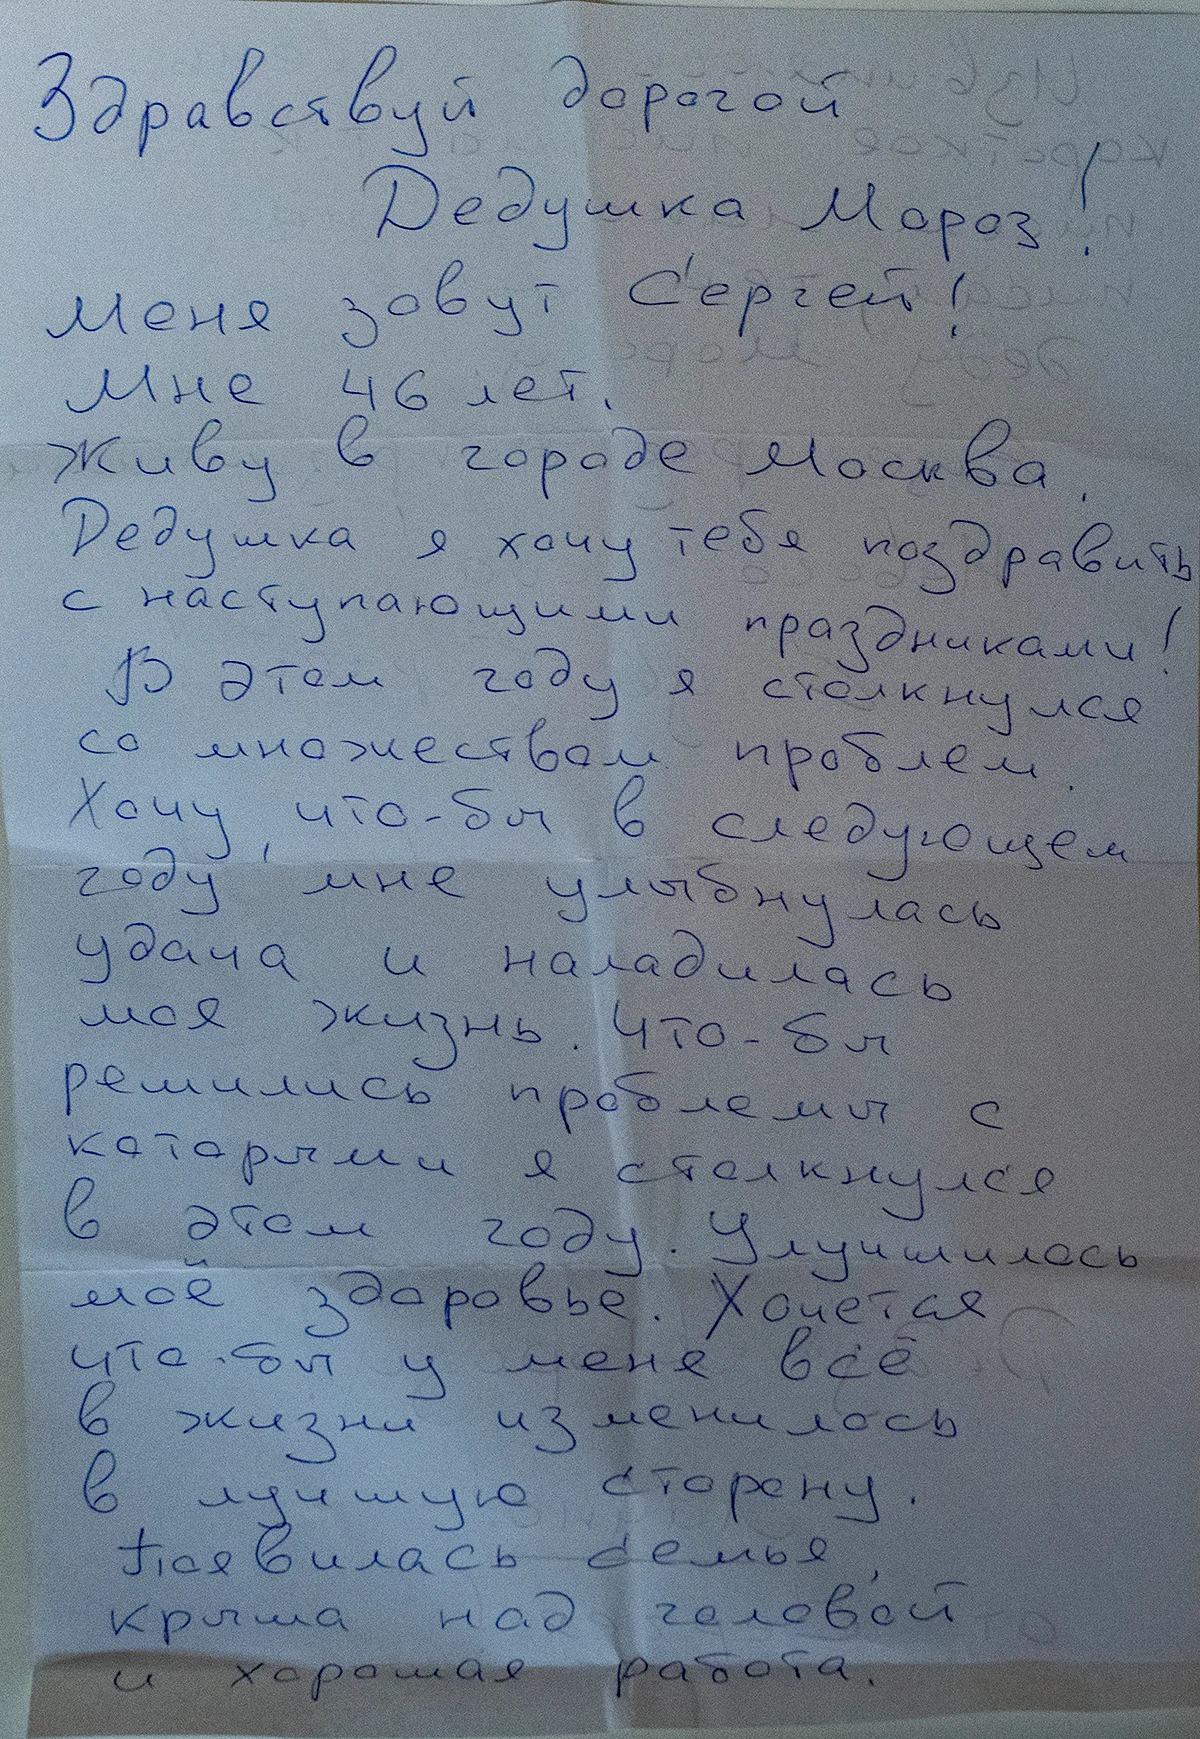 Здравствуй дорогой
Дедушка Мороз!
Меня зовут Сергей!
Мне 46 лет.
Живу в городе Москва.
Дедушка я хочу тебя поздравить
с наступающими праздниками!
В этом году я столкнулся
со множеством проблем.
Хочу, что-бы в следующем
году мне улыбнулась
удача и наладилась
моя жизнь. Что-бы
решились проблемы с
которыми я столкнулся
в этом году. Улучшилось
моё здоровье. Хочется
что-бы у меня всё
в жизни изменилось
в лучшую сторону.
Появилась семья,
крыша над головой
и хорошая работа.